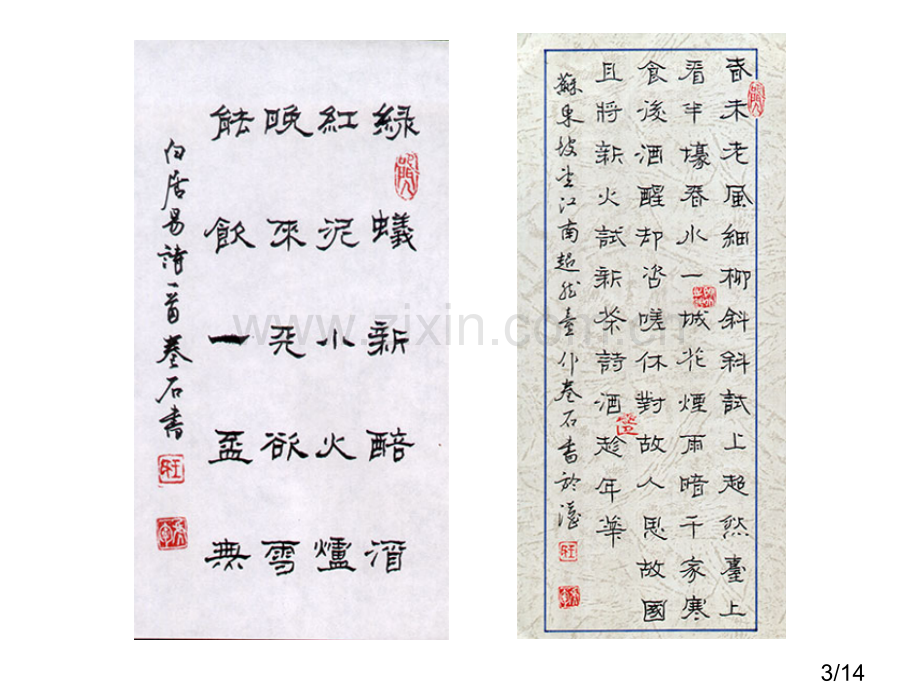 綠蟻新醅酒
紅泥小火爐
晚來天欲雪
能飲一盃無
白居易詩一首 卷石書
春未老風細柳斜斜試上超然臺上
看半壕春水一城花煙雨暗千家寒
食後酒醒却咨嗟休對故人思故國
且將新火試新茶詩酒趁年華
蘇東坡望江南超然臺作卷石書於
www.zixin.com.cn
3/14